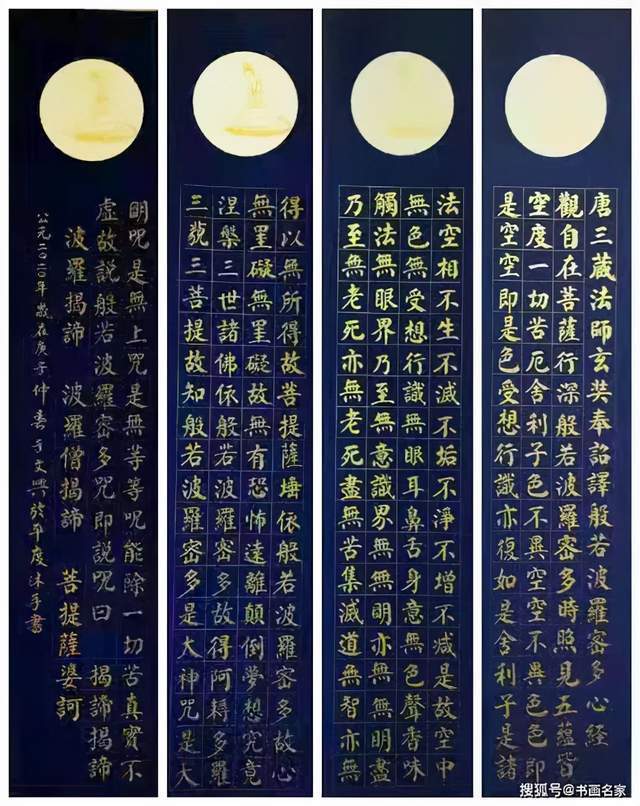 唐三藏法師玄奘奉詔譯般若波羅密多心經
觀自在菩薩行深般若波羅密多時照見五蘊皆
空度一切苦厄舍利子色不異空空不異色色即
是空空即是色受想行識亦復如是舍利子是諸
法空相不生不滅不垢不淨不增不減是故空中
無色無受想行識無眼耳鼻舌身意無色聲香味
觸法無眼界乃至無意識界無無明亦無無明盡
乃至無老死亦無老死盡無苦集滅道無智亦無
得以無所得故菩提薩埵依般若波羅密多故心
無罣礙無罣礙故無有恐怖遠離顛倒夢想究竟
涅槃三世諸佛依般若波羅密多故得阿耨多羅
三藐三菩提故知般若波羅密多是大神咒是大
明呪是無上咒是無等等呪能除一切苦真實不
虛故說般若波羅密多咒即說咒曰 揭諦揭諦
波羅揭諦 波羅僧揭諦 菩提薩婆訶
公元二〇二〇年歲在庚子仲春于文興於平度沐手書
搜狐号@书画名家